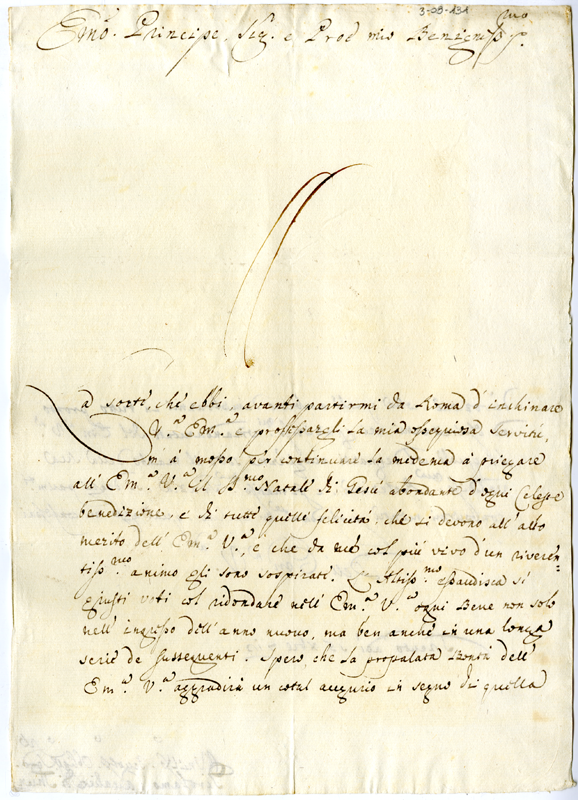 3-09-131
Em̃o. Principe, Sig. e Prod mio Benigniss.mo
La sorte, che ebbi, avanti partirmi da Roma d'inchinare
V.a Em.a e professargli la mia ossequiosa servitù,
m'à mosso per continuare la medema à priegare
all'Em.a V.a il S.mo Natale di Gesù abondante d'ogni Celeste
benedizione, e di tutte quelle felicità che si devono all'alto
merito dell'Em.a V.a, e che da mè col più vivo d'un riveren=
tiss.mo animo gli sono sospirate. L'Altiss.mo esaudisca sì
giusti voti col ridondare nell'Em.a V.a ogni Bene non solo
nell'ingresso dell'anno nuovo, ma ben anche in una longa
serie de susseguenti. Spero, che la propalata Bontà dell'
Em.a V.a aggradirà un cotal augurio in segno di quella